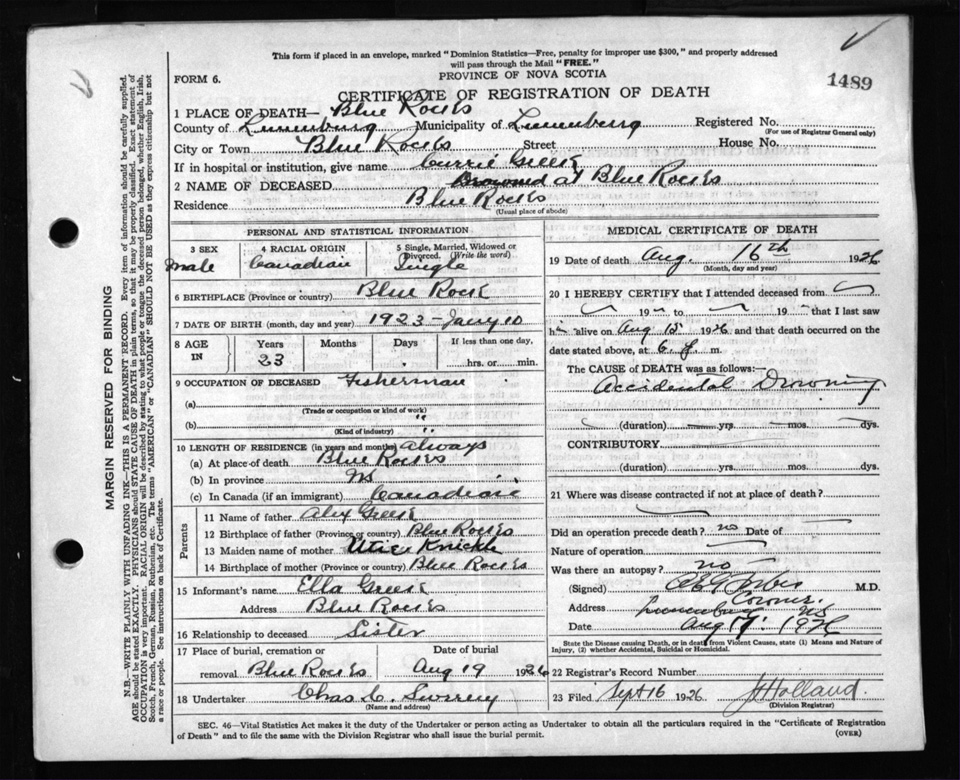 This form if placed in an envelope, marked "Dominion Statistics—Free, penalty for improper use $300," and properly addressed
will pass through the Mail "FREE."
FORM 6.
PROVINCE OF NOVA SCOTIA
1489
CERTIFICATE OF REGISTRATION OF DEATH
1 PLACE OF DEATH— Blue Rocks
County of Lunenburg Municipality of Lunenburg Registered No.
(For use of Registrar General only)
City or Town Blue Rocks Street House No.
If in hospital or institution, give name
2 NAME OF DECEASED Drowned at Blue Rocks
Residence Blue Rocks
(Usual place of abode)
PERSONAL AND STATISTICAL INFORMATION
3 SEX male
4 RACIAL ORIGIN Canadian
5 Single, Married, Widowed or
Divorced. (Write the word)
Single
6 BIRTHPLACE (Province or country) Blue Rock
7 DATE OF BIRTH (month, day and year) 1923 - Jany 10
8 AGE IN Years 23 Months Days If less than one day,
hrs. or min.
9 OCCUPATION OF DECEASED Fisherman
(a)
(Trade or occupation or kind of work)
(b) "
(Kind of industry) "
10 LENGTH OF RESIDENCE (in years and months) always
(a) At place of death Blue Rocks
(b) In province NS
(c) In Canada (if an immigrant) Canadian
Parents
11 Name of father Alex
12 Birthplace of father (Province or country) Blue Rocks
13 Maiden name of mother Knickle
14 Birthplace of mother (Province or country) Blue Rocks
15 Informant's name Ella
Address Blue Rocks
16 Relationship to deceased Sister
17 Place of burial, cremation or Date of burial
removal Blue Rocks Aug 19 1926
18 Undertaker Chas C.
(Name and address)
MEDICAL CERTIFICATE OF DEATH
19 Date of death Aug. 16th 1926
(Month, day and year)
20 I HEREBY CERTIFY that I attended deceased from
19 to 19 that I last saw
h alive on Aug 15 1926 and that death occurred on the
date stated above, at 6 m.
The CAUSE OF DEATH was as follows:—
Accidental Drowning
(duration) yrs. mos. dys.
CONTRIBUTORY
(duration) yrs. mos. dys.
21 Where was disease contracted if not at place of death?
Did an operation precede death? no Date of
Nature of operation
Was there an autopsy? no
(Signed) M.D.
Coroner.
Address Lunenburg NS
Date Aug 17 1926
State the Disease causing Death, or in death from Violent Causes, state (1) Means and Nature of
Injury, (2) whether Accidental, Suicidal or Homicidal.
22 Registrar's Record Number
23 Filed Sept 16 1926 J Holland.
(Division Registrar)
SEC. 46—Vital Statistics Act makes it the duty of the Undertaker or person acting as Undertaker to obtain all the particulars required in the "Certificate of Registration
of Death" and to file the same with the Division Registrar who shall issue the burial permit.
(OVER)
MARGIN RESERVED FOR BINDING
N.B.—WRITE PLAINLY WITH UNFADING INK—THIS IS A PERMANENT RECORD. Every item of information should be carefully supplied.
AGE should be stated EXACTLY. PHYSICIANS should STATE CAUSE OF DEATH in plain terms, so that it may be properly classified. Exact statement of
OCCUPATION is very important. RACIAL ORIGIN will be described by stating to what people or tongue the deceased person belonged, whether English, Irish,
Scotch, French, German, Russian, Ruthenian, etc. The terms "AMERICAN" or "CANADIAN" SHOULD NOT BE USED as they express citizenship but not
a race or people. See instructions on back of Certificate.